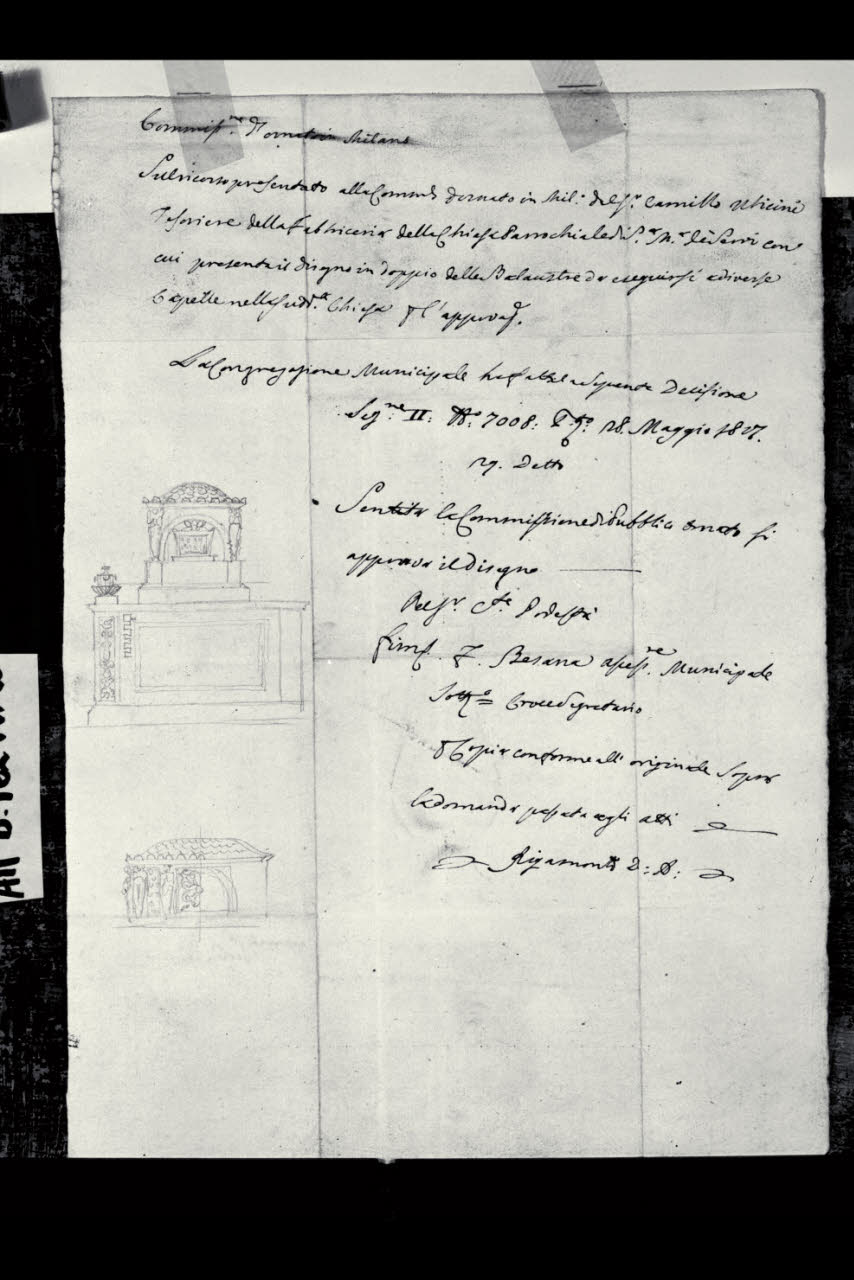 Commiss.ne d'ornato in Milano
Sul ricorso presentato alla Comm.e d'ornato in Mil.o del S.r Camillo
Tesoriere della Fabbriceria della Chiesa Parrochiale di S.a M.a de Servi con
cui presenta il disegno in doppio delle Balaustre da eseguirsi a diverse
Capelle nella sud.ta Chiesa p l'approvaz.e
La Congregazione Municipale ha fatto la seguente Decisione
Sez.ne II: N.o 7008: 28. Maggio 1827.
29. Detto
Sentita la Commissione di Pubblico ornato si
approva il disegno
Pel Sr. C.te Podestà
Firm. F. Besana assess.re Municipale
Sott.o Croce Segretario
p Copia conforme all' originale Sopra
la domanda passata agli atti
Rigamonti D: A:
All B.